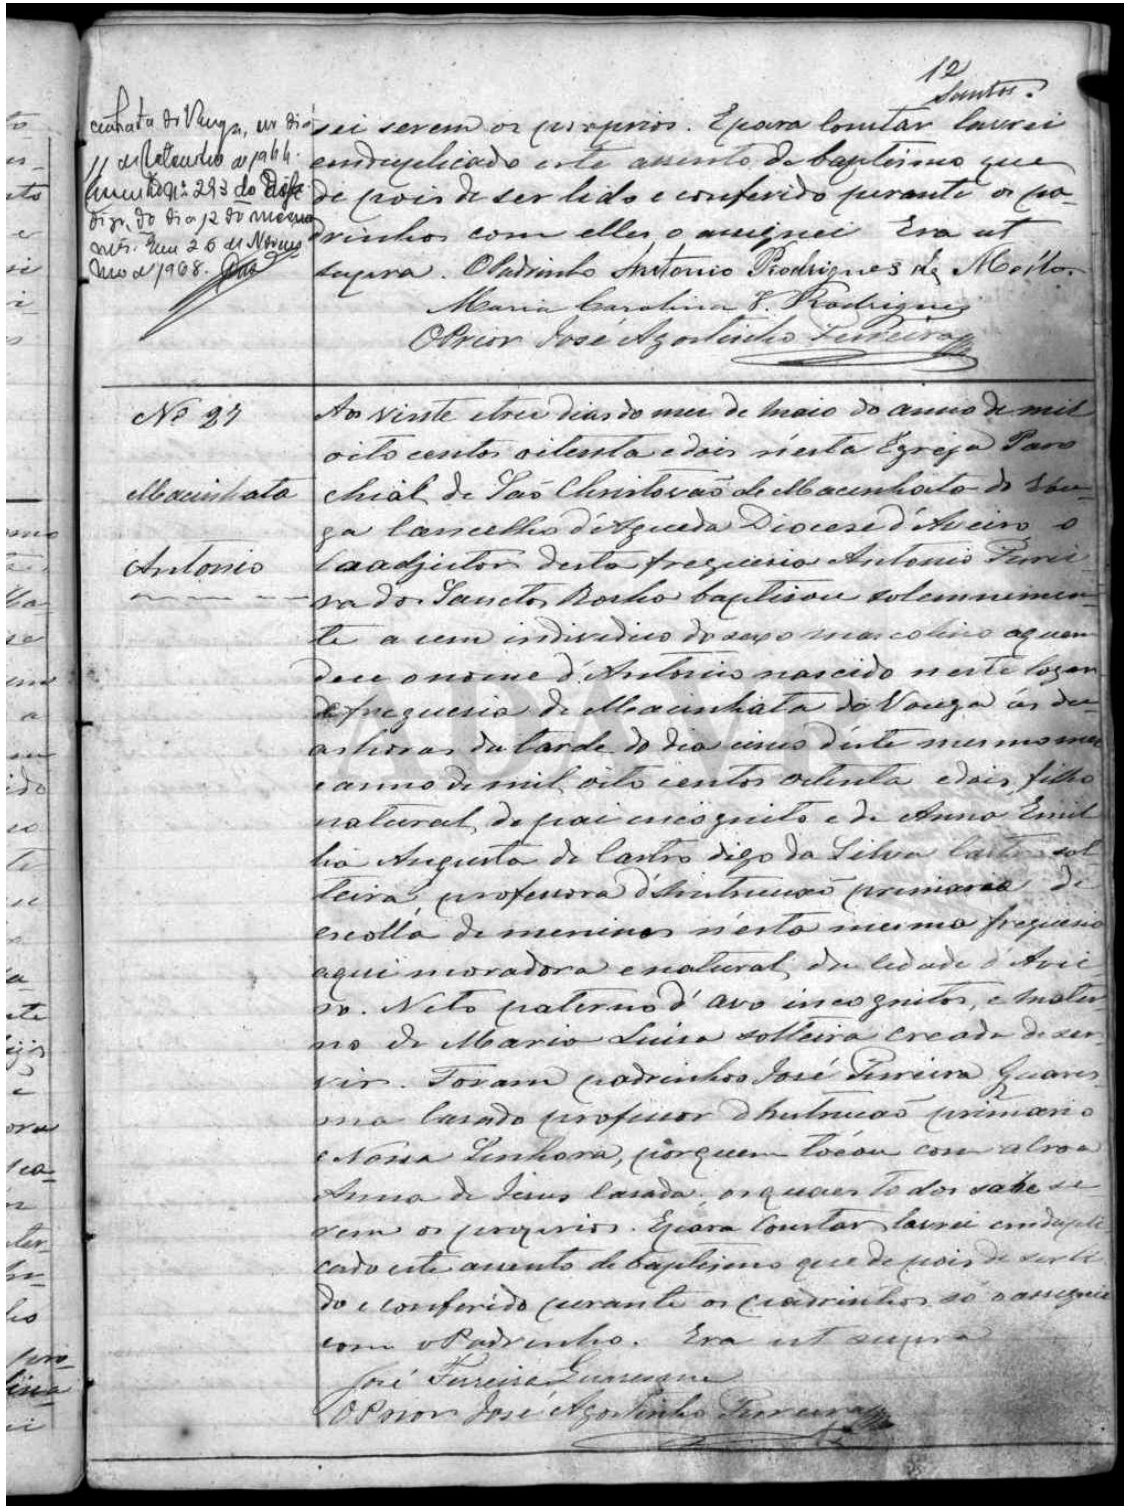 12
Santos.
cinhata do Vouga, no dia
11 de Setembro de 1944.
Assento nº 293 do
digo, do dia 12 do mesmo
mês. Em 26 de Novem
bro de 1968.
sei serem os proprios. E para constar lavrei
em duplicado este assento de baptismo que
de pois de ser lido e conferido perante os pa-
drinhos com elles o assignei Era ut
supra. O Padrinho Antonio Rodrigues de Mello.
Maria Carolina F. Rodrigues
O Prior José Agostinho Ferreira
Nº 27
Macinhata
Antonio
Aos vinte e tres dias do mes de Maio do anno de mil
oito centos oitenta e dois n'esta Egreja Paro
chial de São Christovão de Macinhata do Vou-
ga Concelho d'Agueda Diocese d'Aveiro o
Coadjutor desta freguesia Antonio Ferrei
ra dos Sanctos Rocha baptisou solemnemen-
te a um individuo do sexo mascolino a quem
deu o nome d'Antonio nascido neste logar
e freguesia de Macinhata do Vouga ás du-
as horas da tarde do dia cinco d'este mesmo mes
e anno de mil oito centos oitenta e dois, filho
natural, de pai incognito e de Anna Emil
lia Augusta de Castro digo da Silva Castro sol
teira, professora d'Instrucção primaria de
escolla de meninos n'esta mesma freguesia
aqui moradora e natural, da Cidade d'Avei-
ro. Neto paterno d'avo incognitos, e mater
no de Maria Luisa solteira creada de ser-
vir. Foram padrinhos José Ferreira Quares-
ma casado professor d'Instrucção primaria
e Nossa Senhora, por quem tocou com a Coroa
Anna de Jesus Casada, os quaes todos sabe se
rem os proprios. E para Constar lavrei em dupli
cado este assento de baptismo que de pois de ser li
do e conferido perante os padrinhos só o assignei
com o Padrinho. Era ut supra
José Ferreira Quaresma
O Prior José Agostinho Ferreira